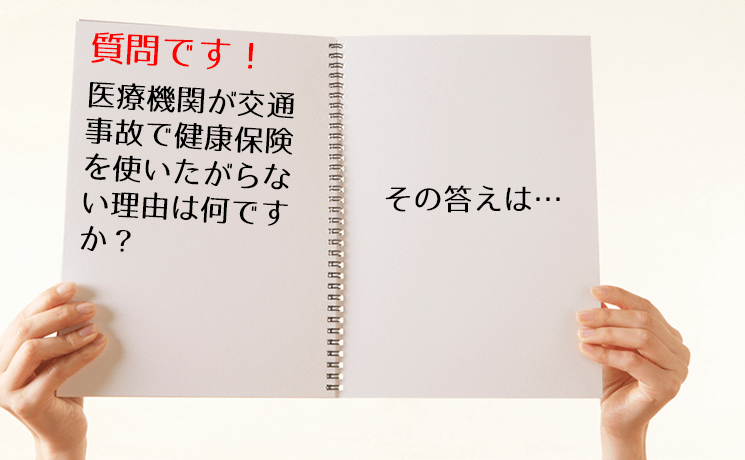 質問です！
医療機関が交通
事故で健康保険
を使いたがらな
い理由は何です
か？
その答えは…